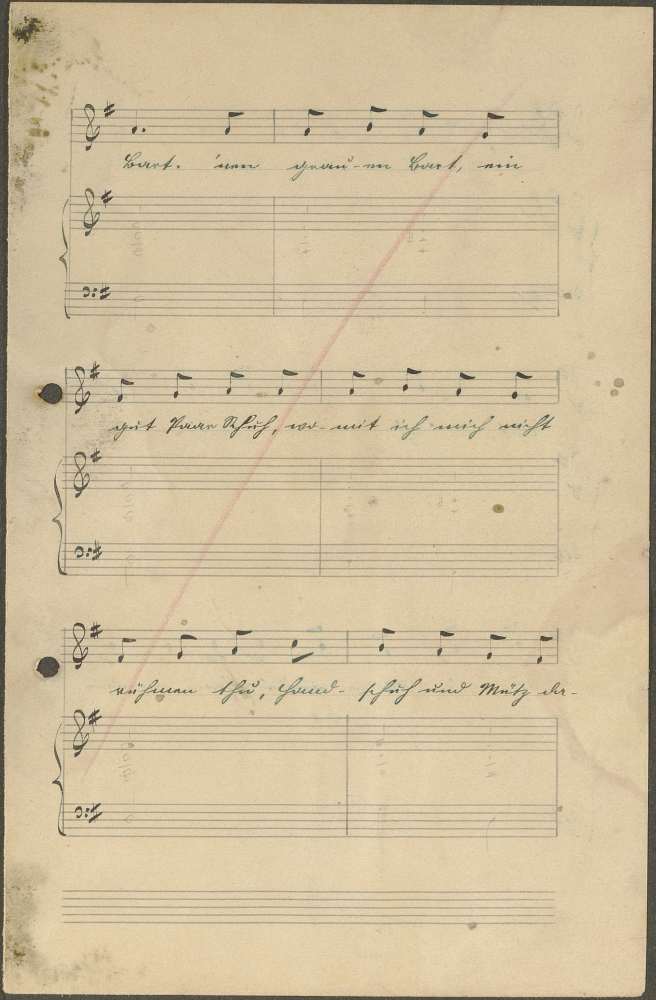 Bart. 'nen grau-en Bart, ein
gut Paar Schuh, wo-mit ich mich nicht
rühmen thu, Hand-schuh und Mütz da-